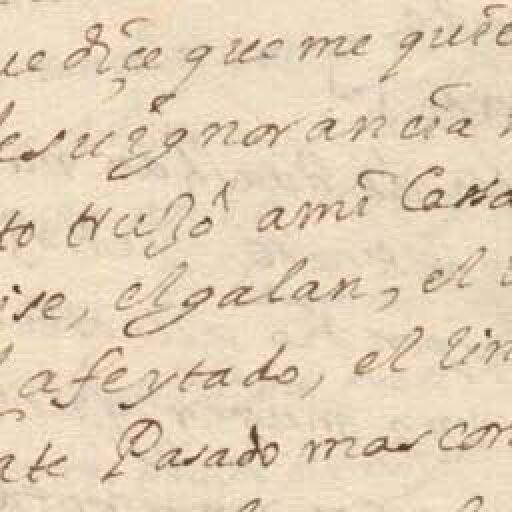 ue dice que me quie
de su ignorancia
to truxo a mi Cassa
ise, el galan, el
afeytado, el lin
ate Pasado mas con